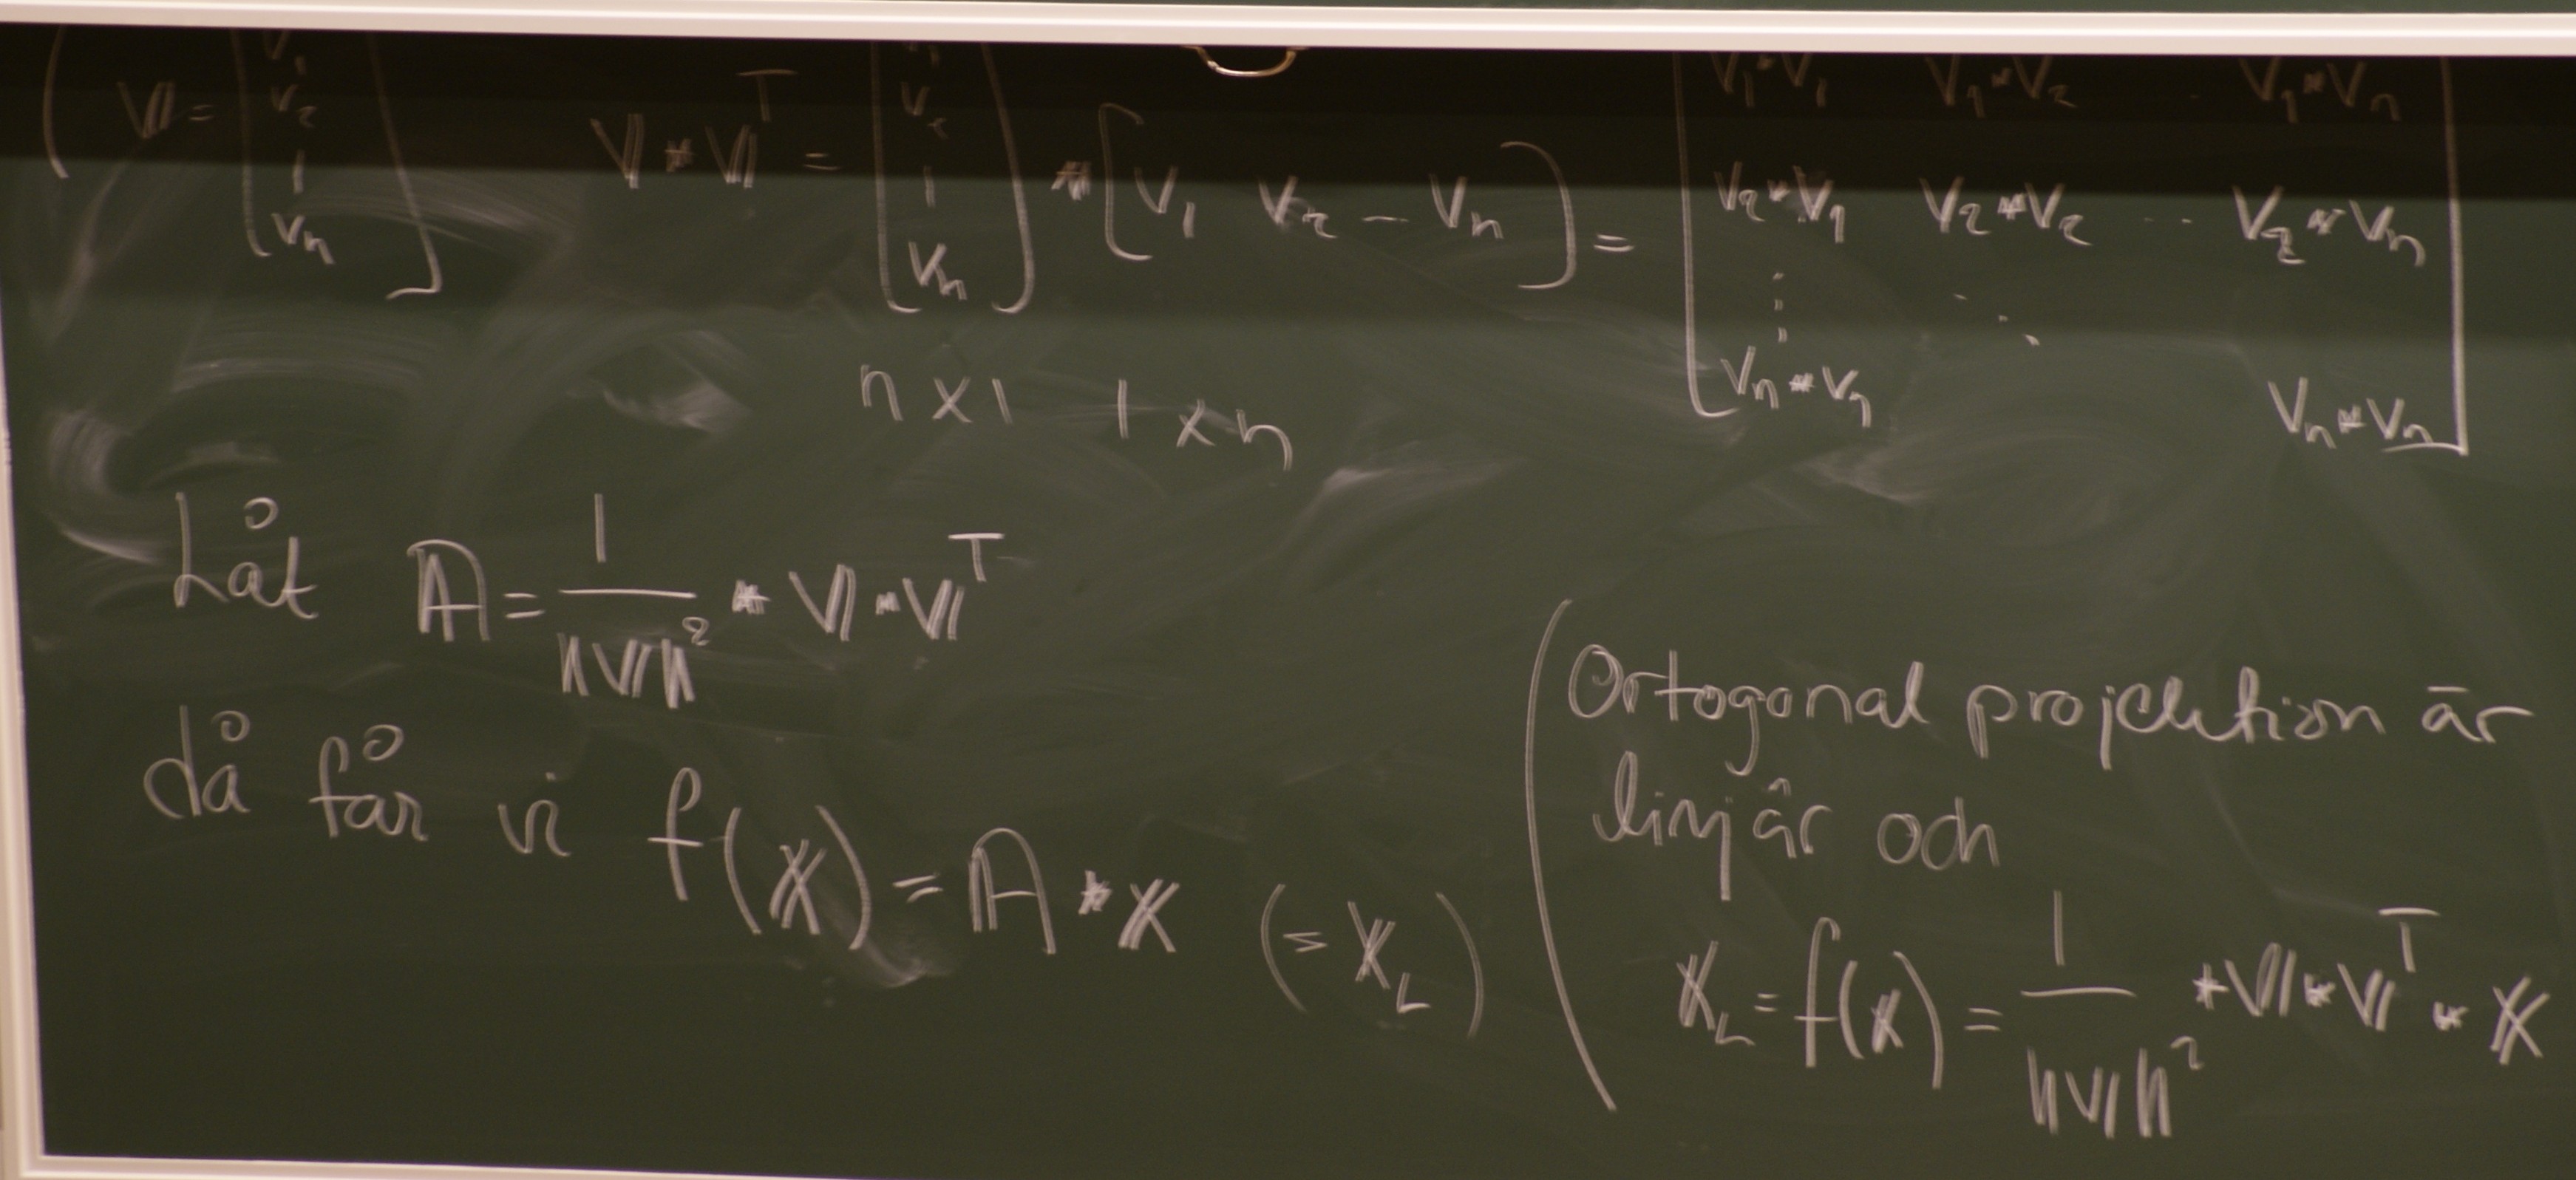 ( V = [ v₁ v₂ ⋮ vₙ ] V * Vᵀ = [ v₁ v₂ ⋮ vₙ ] * [ v₁ v₂ – vₙ ] = [ v₁*v₁ v₁*v₂ · v₁*vₙ
v₂*v₁ v₂*v₂ ·· v₂*vₙ
⋮ ⋱
vₙ*vₙ vₙ*vₙ ]
n×1 1×n
Låt A = 1/‖V‖² * V * Vᵀ
då får vi f(X) = A * X (= X_L)
( Ortogonal projektion är
linjär och
X_L = f(X) = 1/‖V‖² * V * Vᵀ * X